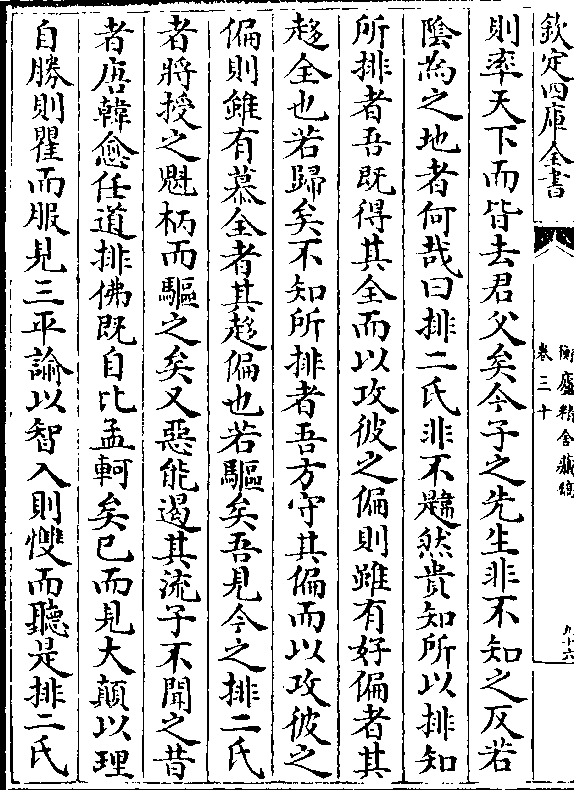 欽定四庫全書
衡廬精舍藏稿
卷三十
九十六
則率天下而皆去君父矣今子之先生非不知之反若
陰為之地者何哉曰排二氏非不韙然貴知所以排知
所排者吾既得其全而以攻彼之偏則雖有好偏者其
趍全也若歸矣不知所排者吾方守其偏而以攻彼之
偏則雖有慕全者其趍偏也若驅矣吾見今之排二氏
者將授之魁柄而驅之矣又惡能遏其流子不聞之昔
者唐韓愈任道排佛既自比孟軻矣已而見大顛以理
自勝則瞿而服見三平論以智入則慡而聽是排二氏